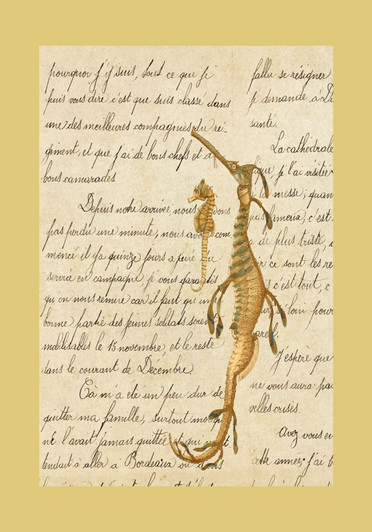 pourquoi j'y suis, tout ce que je
puis vous dire c'est que suis classé dans
une des meilleures compagnies du ré-
giment, et que j'ai de bons chefs et de
bons camarades.
Depuis notre arrivée, nous avons
pas perdu une minute, nous avons com
mencé il y a quinze jours à faire du
service en campagne, je vous garantis
qu'on nous remue car il faut qu'un
bonne partie des jeunes soldats soient
mobilisables le 15 novembre, et le reste
dans le courant de Décembre.
Ça m'a été un peu dur de
quitter ma famille, surtout moi
ne l'avait jamais quitté et qui
tenduit à aller à Bordeaux ou dans
fallu se résigner
p demandé à
santé.
La cathédrale
p l'ai visitée
la messe; quan
c'est
de plus triste,
ce sont les re
c'est tout, c
loin pour
J'espère que
ne vous aura pa
velles crises.
Avez vous en
cette année; j'ai t